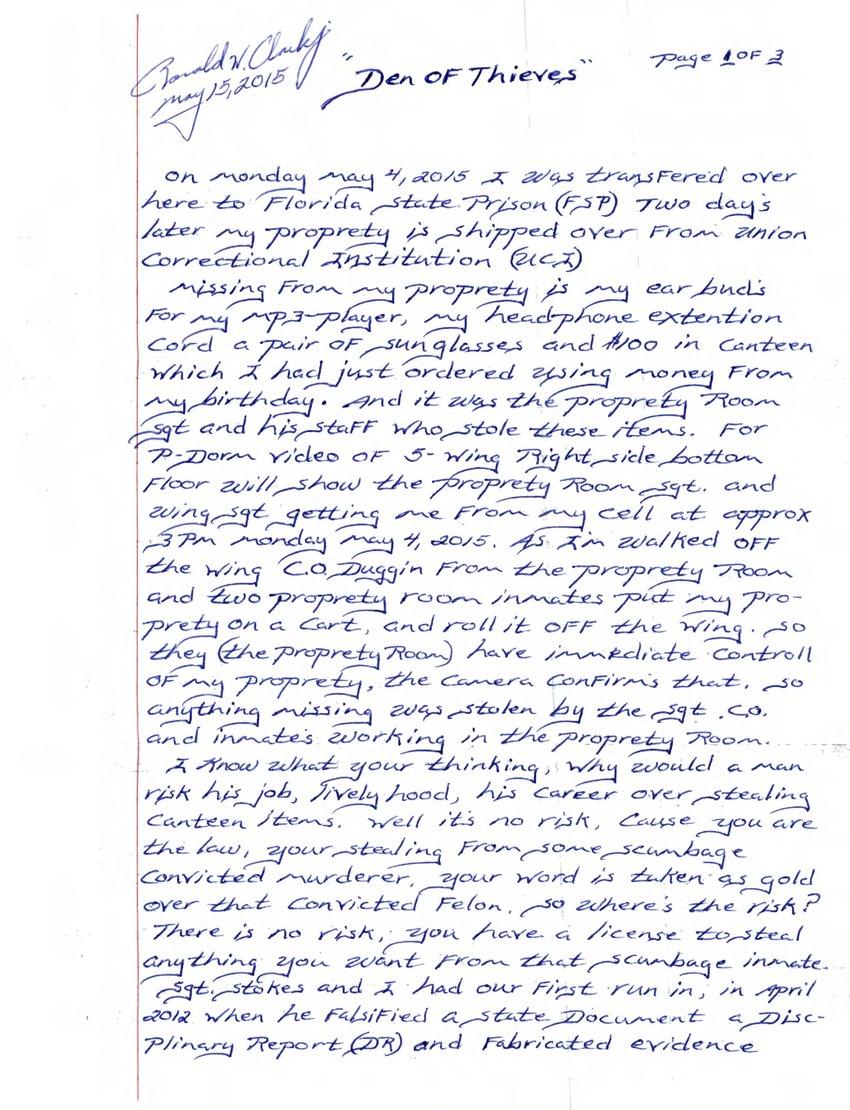 Ronald W. Clark jr
May 15, 2015
"Den OF Thieves"
Page 1 OF 3
On monday may 4, 2015 I was transfered over
here to Florida state Prison (FSP) Two day's
later my proprety is shipped over From Union
Correctional Institution (UCI)
Missing From my proprety is my ear bud's
For my MP3-player, my headphone extention
Cord a pair of sunglasses and $100 in Canteen
which I had just ordered using money From
my birthday. And it was the proprety Room
sgt and his staff who stole these items. For
P-Dorm video of 5-wing Right side bottom
Floor will show the proprety Room sgt. and
wing sgt getting me From my cell at approx
3Pm monday may 4, 2015. As I'm walked OFF
the wing C.O. Duggin From the proprety Room
and two proprety room inmates put my pro-
prety on a Cart, and roll it OFF the wing. so
they (the proprety Room) have immediate Controll
OF my proprety, the Camera Confirm's that. so
anything missing was stolen by the sgt. C.O.
and inmate's working in the proprety Room.
I know what your thinking, why would a man
risk his job, livelyhood, his career over stealing
Canteen items. Well it's no risk, Cause you are
the law, your stealing From some scumbage
Convicted murderer, your word is taken as gold
over that Convicted Felon. so where's the risk?
There is no risk, you have a license to steal
anything you want From that scumbage inmate.
Sgt. Stokes and I had our First run in, in April
2012 when he Falsified a state Document a Disc-
plinary Report (DR) and Fabricated evidence